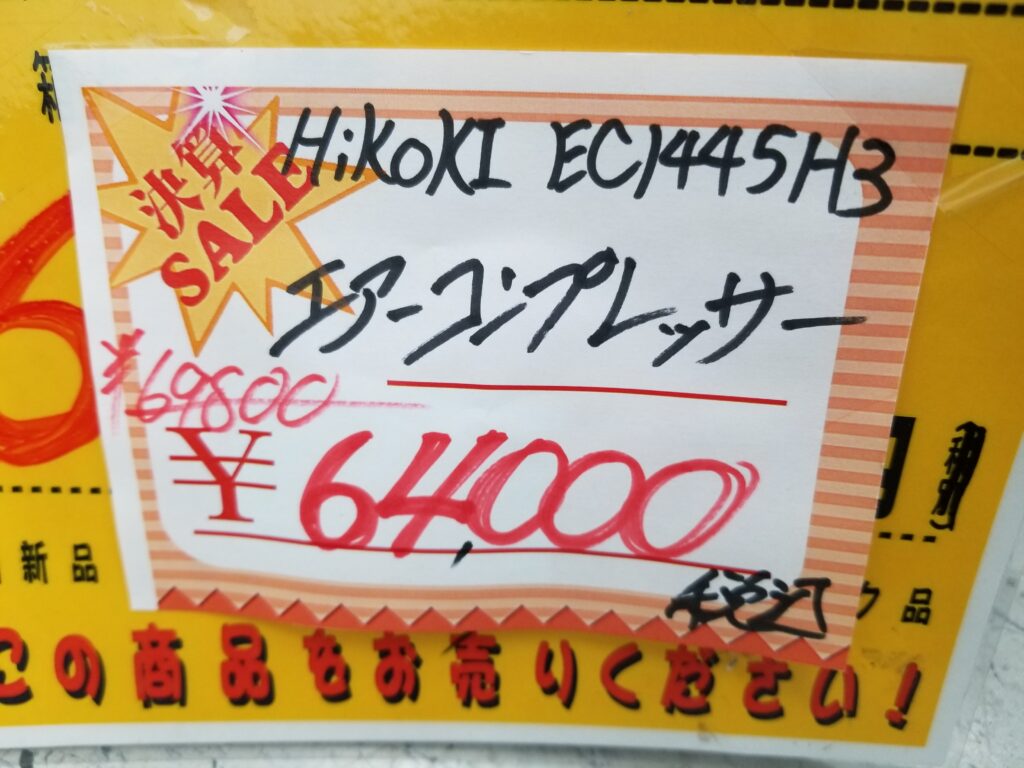 決算
SALE
HiKOKI EC1445H3
エアーコンプレッサー
¥69800
¥64,000
税込
新品
品
この商品をお売りください!